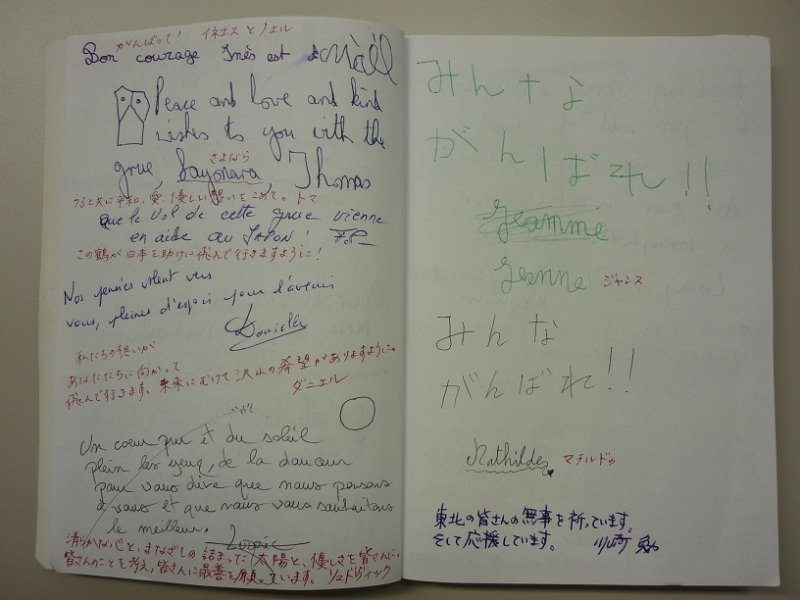 がんばって! イネスとノエル
Bon courage Inès et Naël
Peace and love and kind
wishes to you with the
さよなら
grue, Sayonara, Thomas
つると共に平和、愛、優しい想いをこめて。トマ
Que le vol de cette grue vienne
en aide au JAPON!
この鶴が日本を助けに飛んで行きますように!
Nos pensées vont vers
vous, pleines d'espoir pour l'avenir
Danielle
私たちの想いが
あなたたちに向かって
飛んで行きます。未来にむけて沢山の希望がありますように。
ダニエル
Un cœur pur et du soleil
plein les yeux, de la douceur
pour vous dire que nous pensons
à vous et que nous vous souhaitons
le meilleur.
清らかな心と、まなざしの詰まった太陽と、優しさを皆さんに。
皆さんのことを考え、皆さんに最善を願っています。リュドヴィック
みんなよ
がんばれ!!
Jeamme
Jeanne ジャンヌ
みんな
がんばれ!!
Mathilde マチルドゥ
東北の皆さんの無事を祈っています。
そして応援しています。